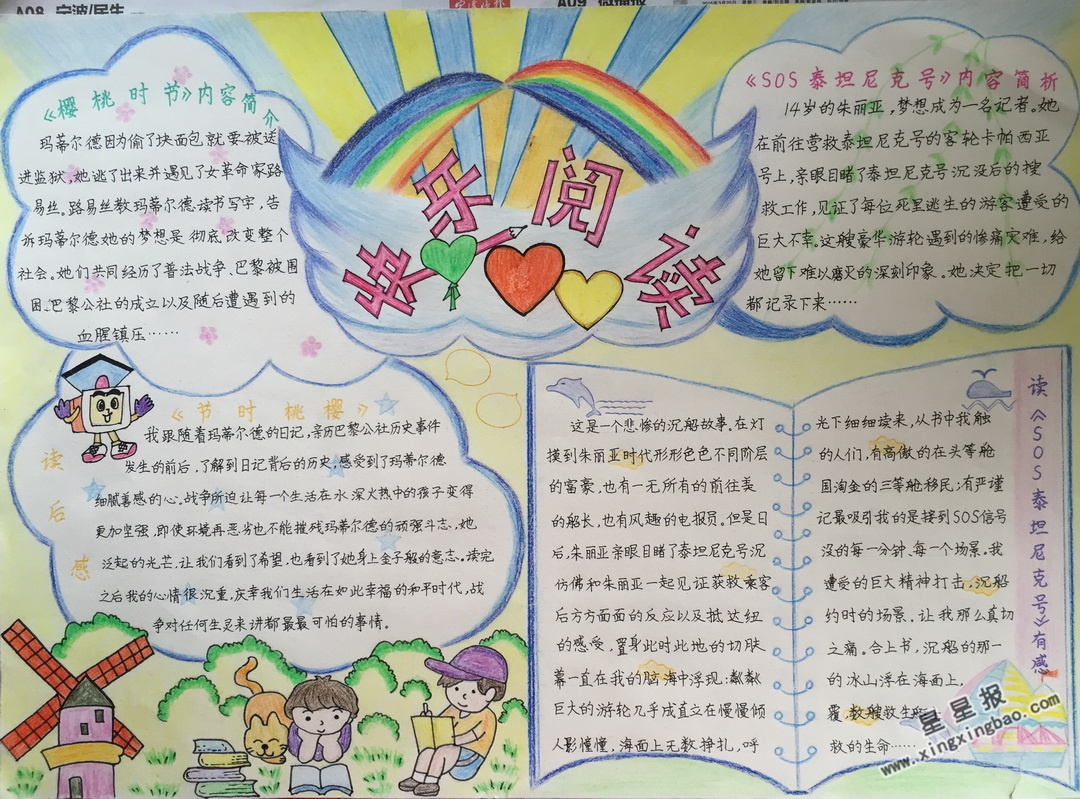 A08 宁波/民生
A09
快乐阅读
《樱桃时节》内容简介
玛蒂尔德因为偷了块面包就要被送
进监狱,她逃了出来并遇见了女革命家路
易丝。路易丝教玛蒂尔德读书写字,告
诉玛蒂尔德她的梦想是彻底改变整个
社会。她们共同经历了普法战争、巴黎被围
困、巴黎公社的成立以及随后遭遇到的
血腥镇压……
《SOS泰坦尼克号》内容简析
14岁的朱丽亚,梦想成为一名记者。她
在前往营救泰坦尼克号的客轮卡帕西亚
号上,亲眼目睹了泰坦尼克号沉没后的搜
救工作,见证了每位死里逃生的游客遭受的
巨大不幸。这艘豪华游轮遇到的惨痛灾难,给
她留下难以磨灭的深刻印象。她决定把一切
都记录下来……
《节时桃樱》
读后感
我跟随着玛蒂尔德的日记,亲历巴黎公社历史事件
发生的前后,了解到日记背后的历史,感受到了玛蒂尔德
细腻善感的心。战争所迫让每一个生活在水深火热中的孩子变得
更加坚强,即使环境再恶劣也不能摧残玛蒂尔德的顽强斗志,她
泛起的光芒,让我们看到了希望,也看到了她身上金子般的意志。读完
之后我的心情很沉重,庆幸我们生活在如此幸福的和平时代,战
争对任何生灵来讲都最最可怕的事情。
读《SOS泰坦尼克号》有感
这是一个悲惨的沉船故事,在灯
摸到朱丽亚时代形形色色不同阶层
的富豪,也有一无所有的前往美
的船长,也有风趣的电报员。但是日
后,朱丽亚亲眼目睹了泰坦尼克号沉
仿佛和朱丽亚一起见证获救乘客
后方方面面的反应以及抵达纽
的感受,置身此时此地的切肤
幕一直在我的脑海中浮现:粼粼
巨大的游轮几乎成直立在慢慢倾
人影憧憧,海面上无数挣扎,呼
光下细细读来,从书中我触
的人们,有高傲的在头等舱
国淘金的三等舱移民;有严谨
记最吸引我的是接到SOS信号
没的每一分钟、每一个场景。我
遭受的巨大精神打击,沉船
约时的场景,让我那么真切
之痛。合上书,沉船的那一
的冰山浮在海面上,
覆,数艘救生
救的生命……
星星报
www.xingxingbao.com